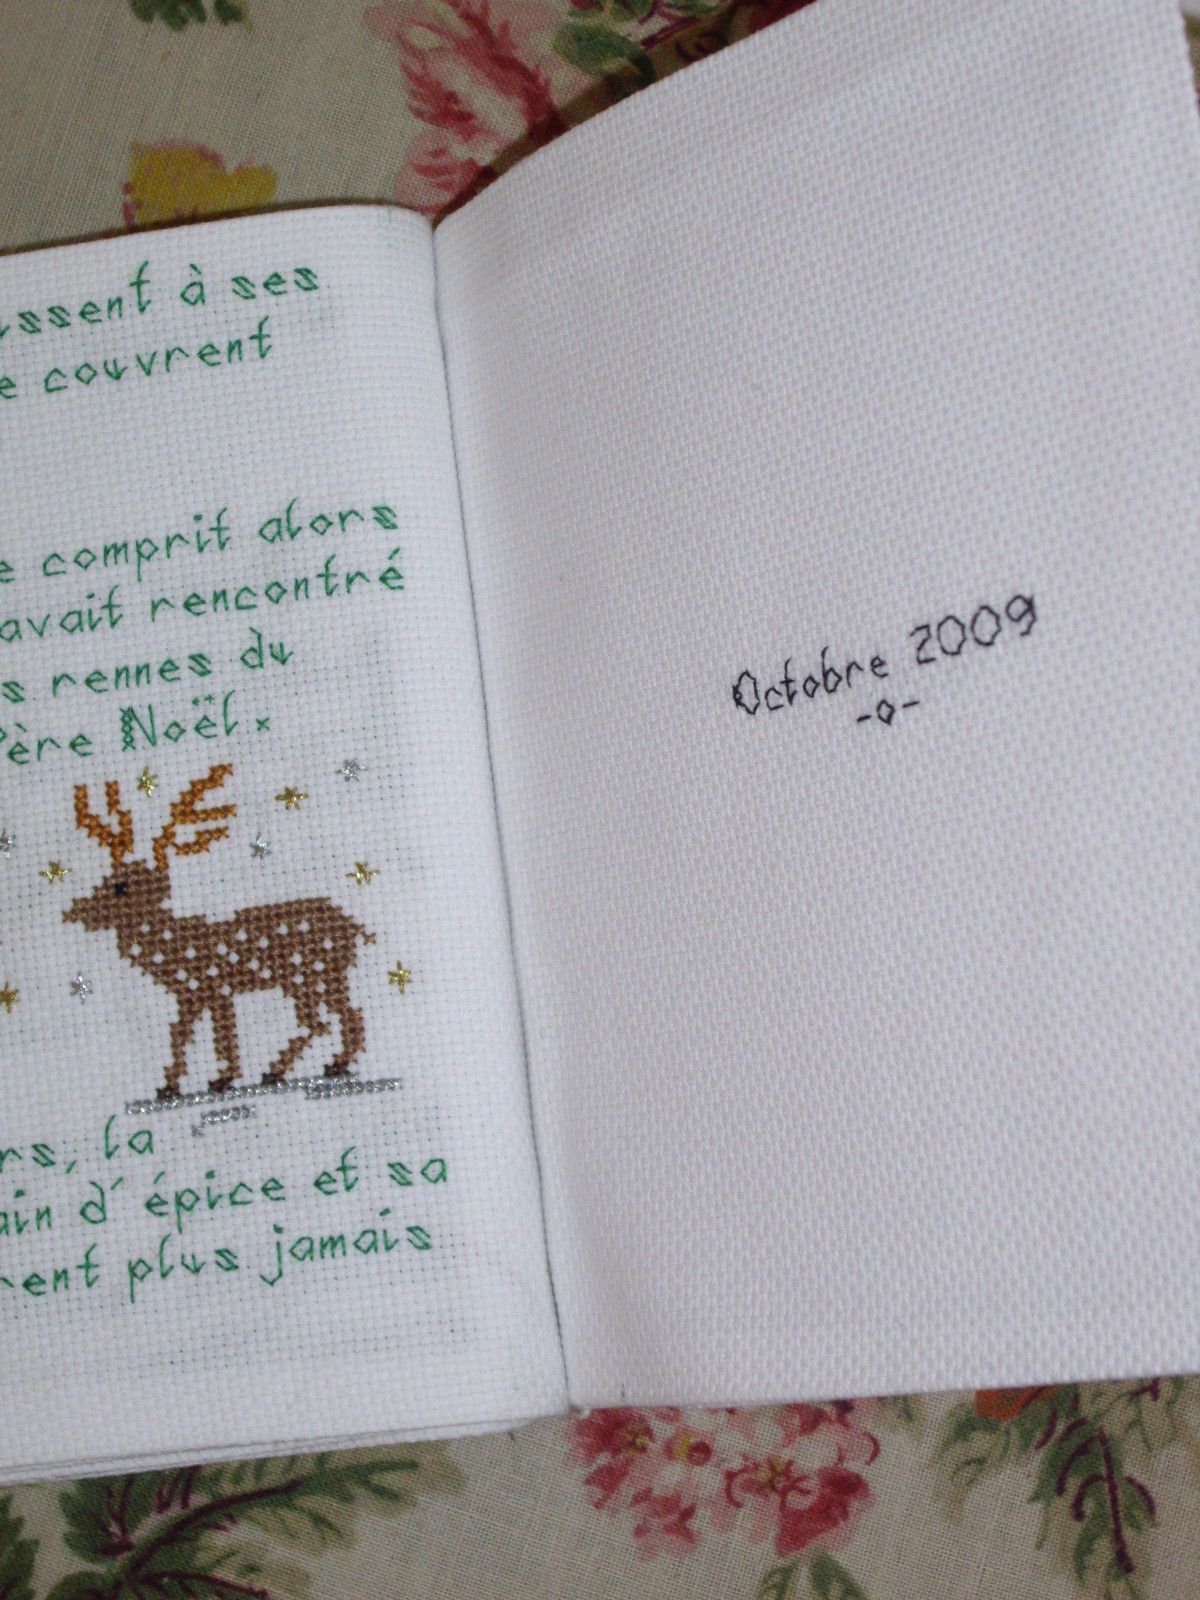 à ses
couvrent
comprit alors
avait rencontré
rennes du
Noël.
la
d'épice et sa
plus jamais
Octobre 2009
-o-